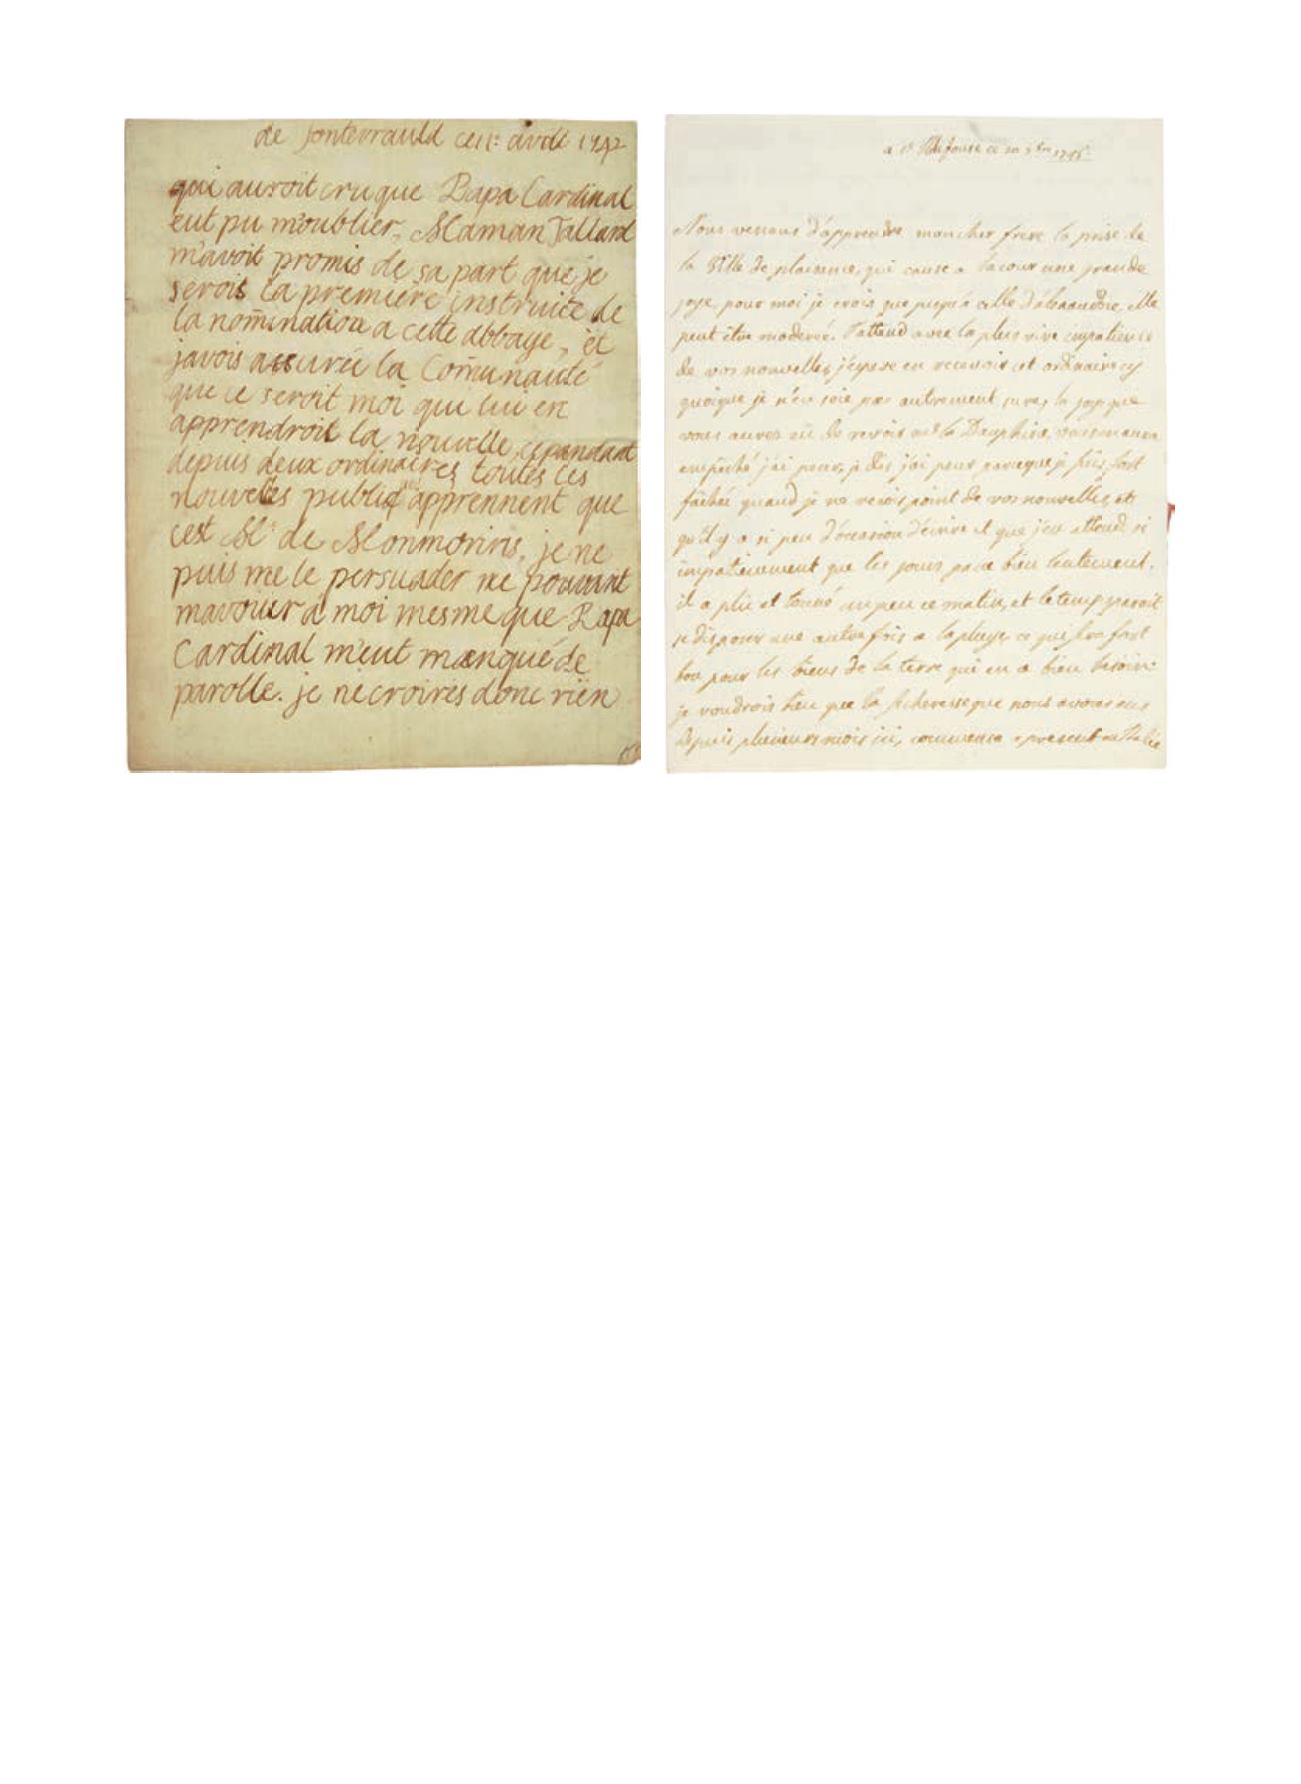 de fontevrauld ce 11: avril 1742
qui auroit cru que Papa Cardinal
eut pu m'oublier, Maman Tallard
m'avoit promis de sa part que je
serois la premiere instruite de
la nom̄ination a cette abbaye, et
javois assurée la Com̄unauté
que ce seroit moi qui lui en
apprendroit la nouvelle, cepandant
depuis deux ordinaires toutes les
nouvelles publiq apprennent que
cest Me de Monmorins, je ne
puis me le persuader ne pouvant
mavouer a moi mesme que Papa
Cardinal m'eut manqué de
parolle. je ne croires donc rien
a St Ildefonse ce
Nous venons d'apprendre mon cher frere la prise de
la Ville de plaisance, qui cause a la cour une grande
joye, pour moi je crois que jusqu'a celle d'alexandrie, elle
peut être moderée. J'attend avec la plus vive impatience
de vos nouvelles, j'espere en recevoir cet ordinaire cy
quoique je n'en soie pas autrement sure, la joye que
vous aurez eü de revoir la Dauphine, vous en aura
empêché j'ai peur, je dis j'ai peur parceque je suis fort
fachée quand je ne reçois point de vos nouvelles, et
qu'il y a si peu d'occasion d'écrire et que j'en attend si
impatiemment que les jours passe bien lentement.
il a plu et tonné un peu ce matin, et le temp paroit
se disposer une autre fois a la pluye, ce qui sera fort
bon pour les biens de la terre qui en a bien besoin:
je voudrois bien que la secheresse que nous avons eue
depuis plusieurs mois ici, commença a present en Italie